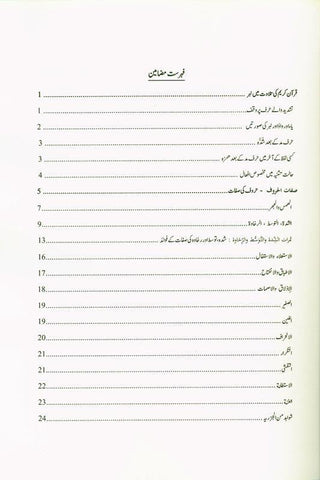 فہرست مضامین
قرآن کریم کی تلاوت میں نبر 1
تشدید والے حرف پر وقف 1
یاء اور واؤ اور نبر کی صورتیں 2
حرف مد کے بعد شدّہ 3
کسی لفظ کے آخر میں حرف مد کے بعد ہمزہ 3
حالت تثنیہ میں مخصوص افعال 4
صفات الحروف - حروف کی صفات 5
الھمس والجھر 7
الشدۃ، التوسط، الرخاوۃ 9
ثمرات الشِّدَّۃ والتَّوَسُّط والرَّخَاوَۃ : شدہ، توسط اور رخاوہ کی صفات کے فوائد 13
الاستعلاء والاستفال 16
الاطباق والانفتاح 17
الاذلاق والاصمات 18
الصفیر 19
اللین 19
الانحراف 20
التکرار 21
التفشّی 21
الاستطالۃ 22
الغنۃ 23
شواہد من الجزریہ 24